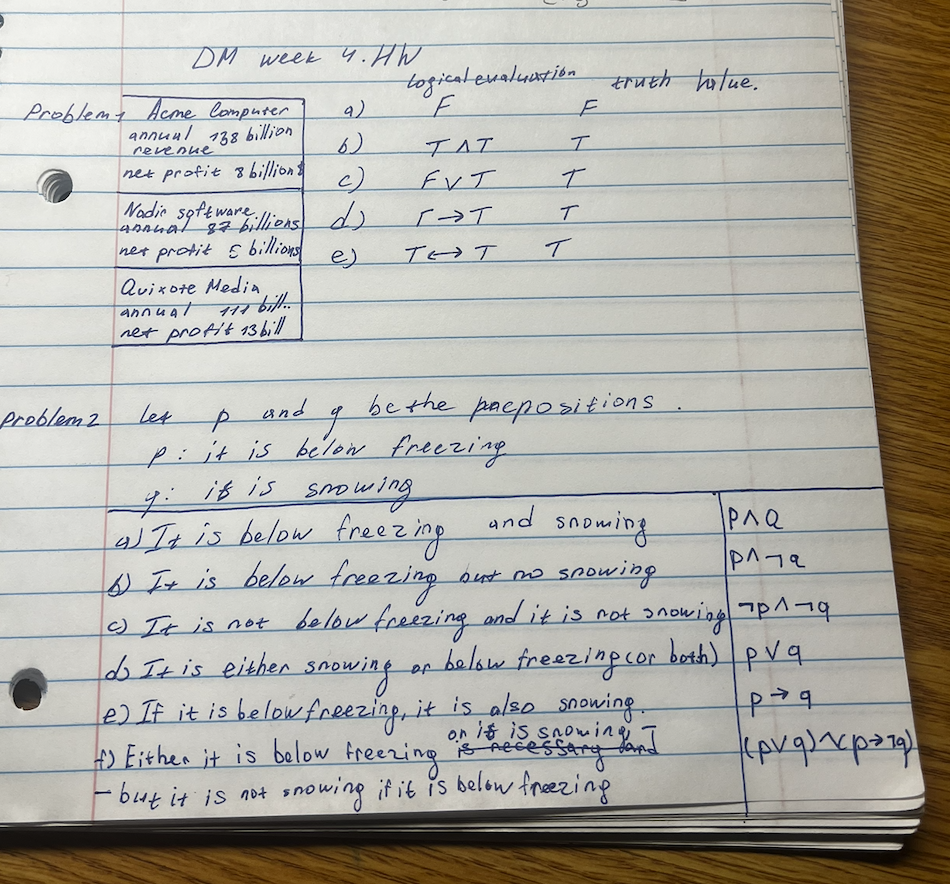 DM week 4. HW
logical evaluation truth value.
Problem 1
Acme Computer
annual 138 billion
revenue
net profit 8 billion $
Nadir software
annual 87 billions
net profit 5 billions
Quixote Media
annual 111 bill.
net profit 13 bill
a) F F
b) T ∧ T T
c) F ∨ T T
d) T → T T
e) T ↔ T T
Problem 2 let p and q be the prepositions.
p: it is below freezing
q: it is snowing
a) It is below freezing and snowing p ∧ q
b) It is below freezing but no snowing p ∧ ¬q
c) It is not below freezing and it is not snowing ¬p ∧ ¬q
d) It is either snowing or below freezing (or both) p ∨ q
e) If it is below freezing, it is also snowing. p → q
or it is snowing,
f) Either it is below freezing is necessary and (p ∨ q) ∧ (p → ¬q)
- but it is not snowing if it is below freezing